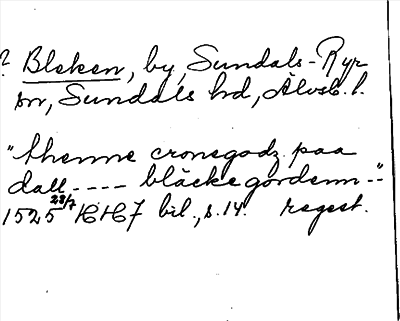 ? Bleken, by, Sundals-Ryr
sn, Sundals hd, Älvsb. l.
"thenne cronegodz paa
dall ---- bläcke gordenn --"
1525 23/7 HH7 bil., s. 14. regest.